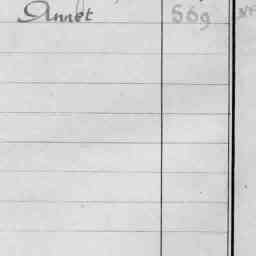 Annet 569